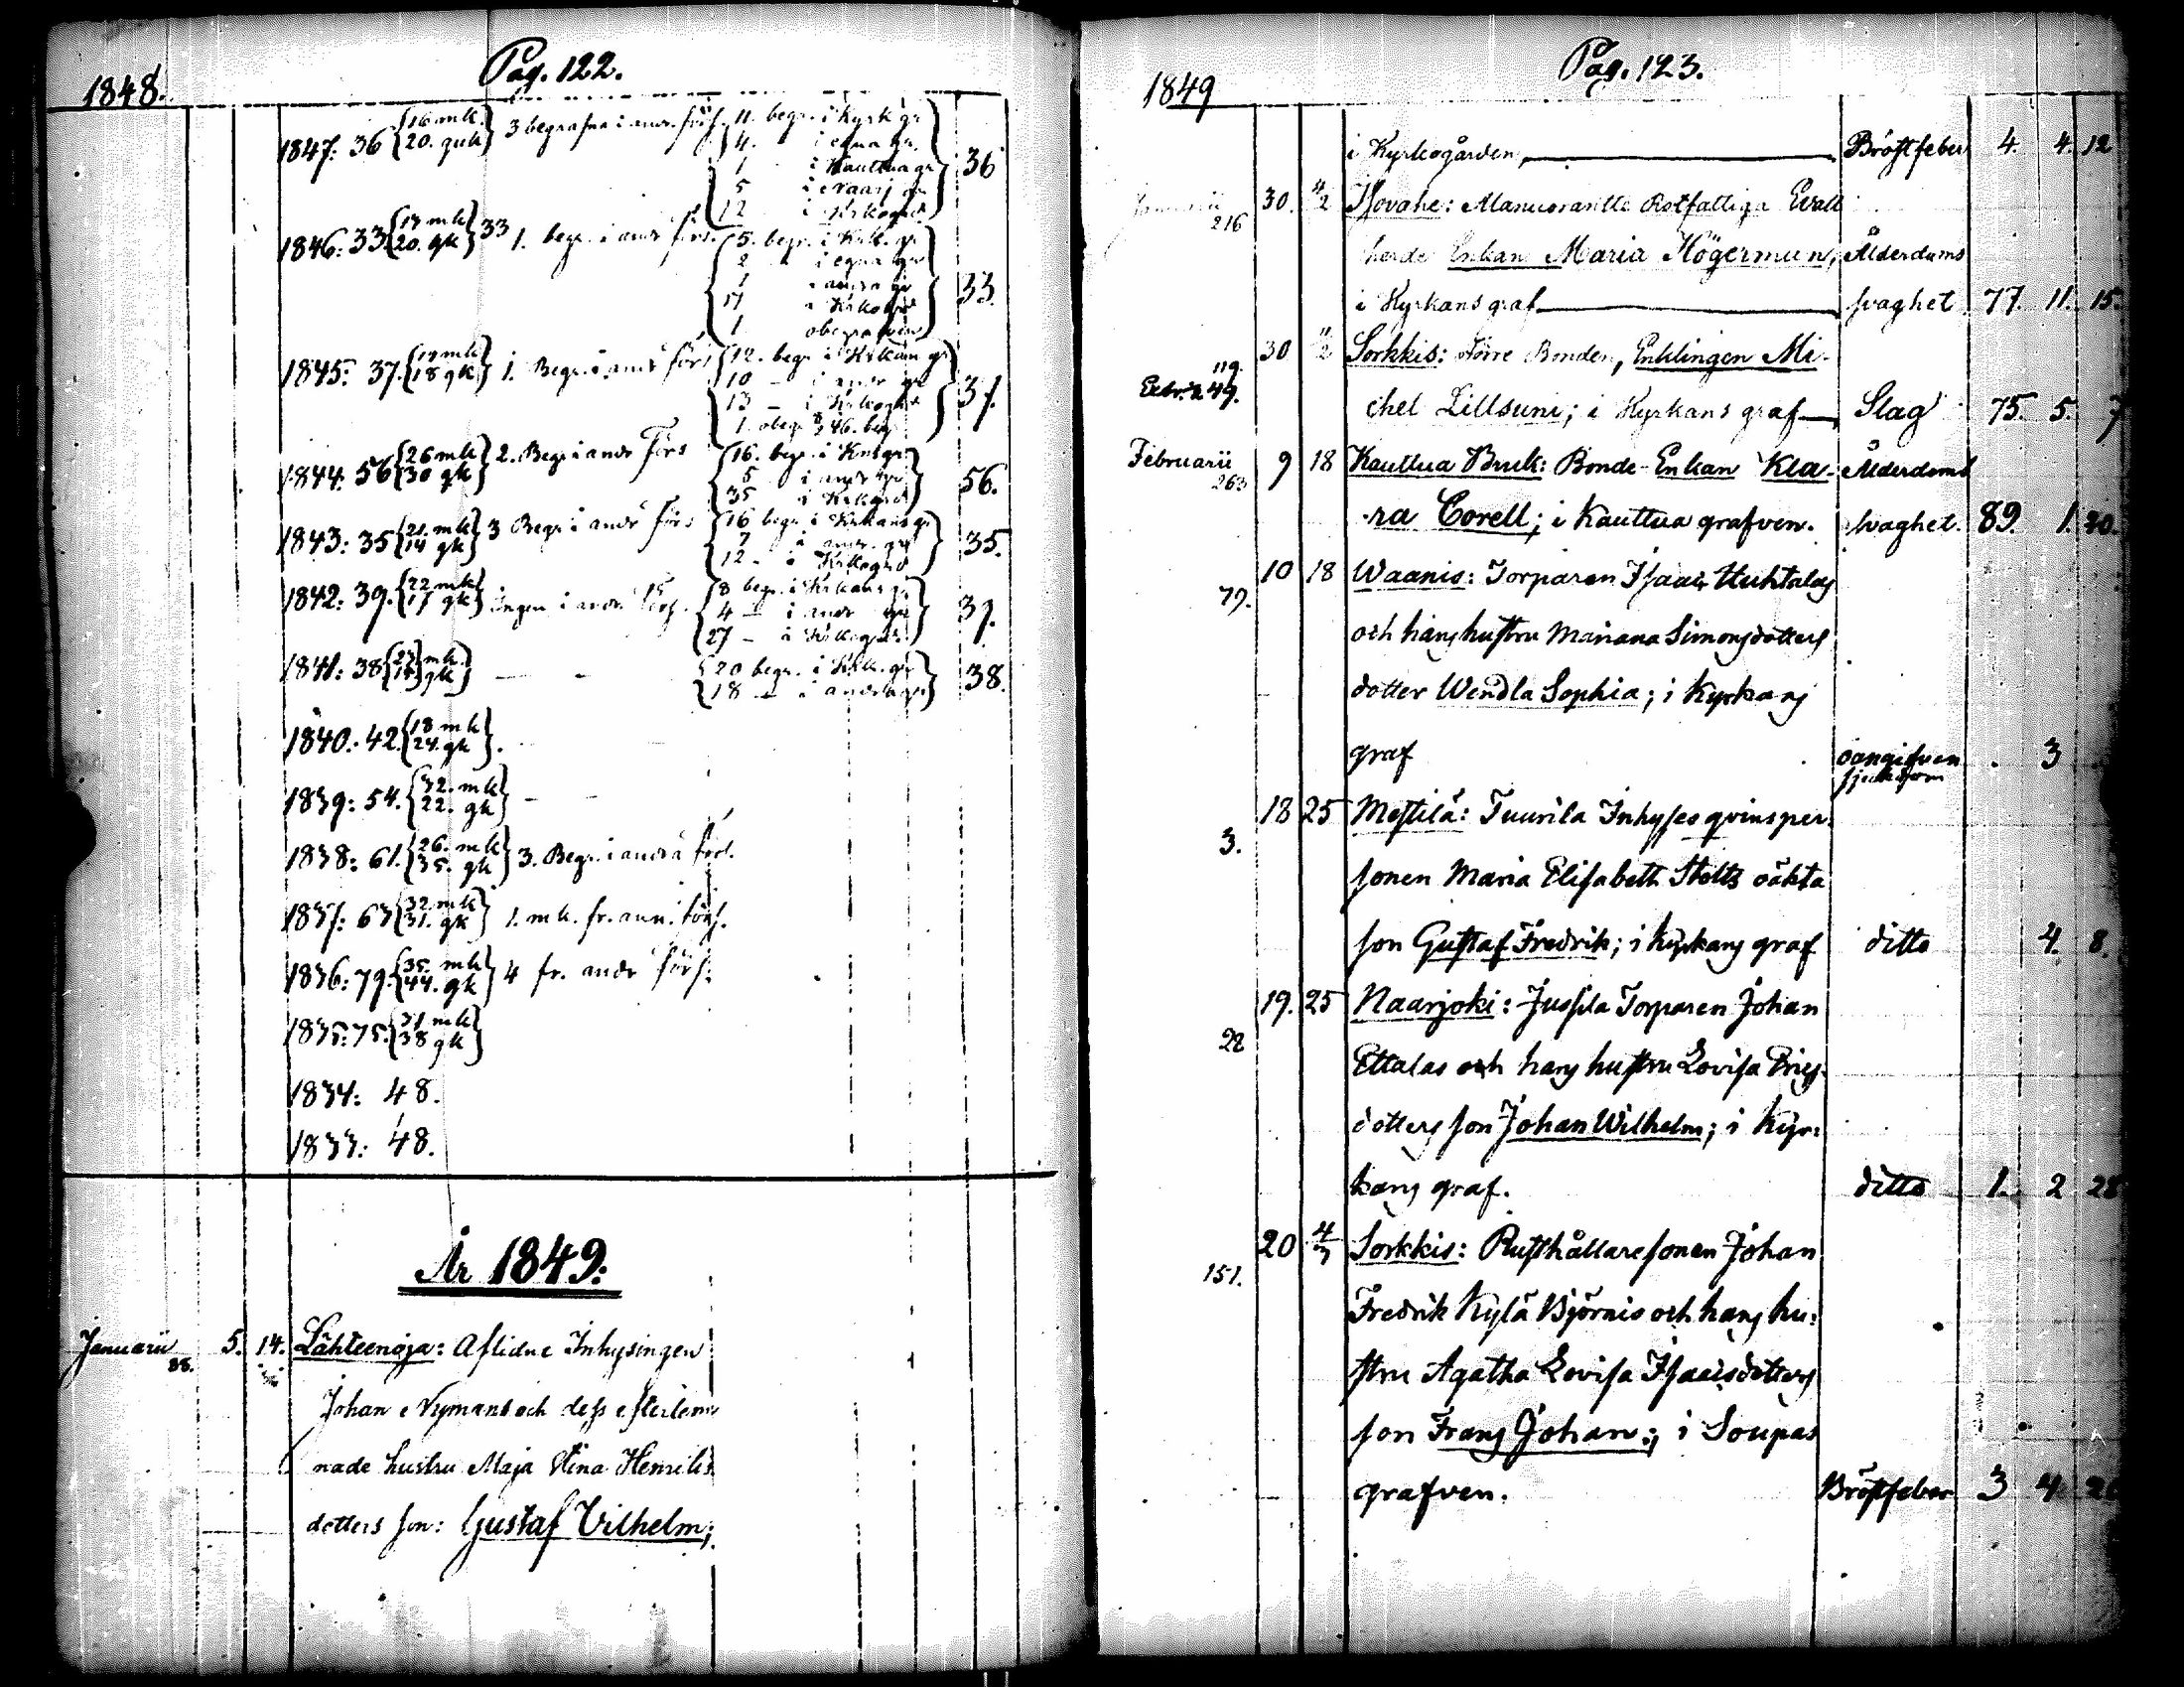 Pag. 122.
1848.
1847: 36 {16 mk. 20. qvk} 3 begrafna i andr. förs. {11. begr. i Kyrk gr
4. i egna gr.
1 i Kauttua gr
5 i Naarj gr
12 i Krkogrd} 36
1846: 33. {13 mk 20. qk} 33 1. begr. i andr förs. {5. begr. i Krk. gr
2 i egna gr
1 i andra gr
1 obegrafven} 33.
1845: 37. {18 qk} 1. Begr. i andr förs {12. begr. i Krkan gr
10 – i andr gr
13 – i Krkogrd
1. obegr 46. begr} 37.
1844: 56 {26 mk 30 qk} 2. Begr i andr Förs {16. begr. i Krkgr
5 i andr gr
35 i Krkogrd} 56.
1843: 35 {21. mk 14 qk} 3 Begr i andr förs {16 begr. i Krkans gr
7 i andr. gr
12 – i Krkogrd} 35.
1842: 39. {22 mk 17 qk} Ingen i andr. förs. {8 begr. i Krkans gr
4 – i andr gr
27 – i Krkogrd}
1841: 38 { mk. qk} – - {20 begr. i Krk. gr
18 – i andra gr} 38.
1840. 42 {18 mk 24. qk}.
1839: 54. {32. mk 22. qk} – –
1838: 61. {26. mk 35. qk} 3. Begr. i andra förs.
1837: 63 {32. mk 31. qk} 1. mk. fr. ann. förs.
1836: 79. {35. mk 44. qk} 4 fr. andr förs.
1835: 75. {37 mk 38 qk}
1834: 48.
1833: 48.
År 1849:
Januarii 38. 5. 14. Lähteenoja: Aflidne Inhysingen
Johan Nymans och dess efterlem
nade hustru Maja Stina Henriks
dotters son: Gustaf Vilhelm;
Pag. 123.
1849
i Kyrkogården, Bröstfeber 4. 4. 12
Januarii 216 30. 4/2 Isovahe: Rotfattiga
Enkan Maria Högerman, Ålderdoms
i Kyrkans graf svaghet 77. 11. 15.
30 11/2 Sorkkis: Större Bonden, Enklingen Mi-
119. 49. chel Lillsuni; i Kyrkans graf Slag 75. 5. 7
Februarii 263 9 18 Kauttua Bruk: Bonde-Enkan Kla- Ålderdoms
ra Corell; i Kauttua grafven. svaghet. 89. 1. 20.
79. 10 18 Waanis: Torparen Isaac Huhtalas
och hans hustru Mariana Simonsdotters
dotter Wendla Sophia; i Kyrkans
graf oangifven sjukdom 3
3. 18 25 Mestilä: Tuurila Inhyses qvinsper-
sonen Maria Elisabeth Stolts oäkta
son Gustaf Fredrik; i Kyrkans graf ditto 4. 8.
22 19. 25 Naarjoki: Jussila Torparen Johan
Ettalas och hans hustru Lovisa Eriks-
dotters son Johan Wilhelm; i Kyr-
kans graf. ditto 1. 2 28
151. 20 4/3 Sorkkis: Rusthållaresonen Johan
Fredrik Kylä Björnis och hans hu-
stru Agatha Lovisa Isaacsdotters
son Frans Johan; i Soupas
grafven. Bröstfeber 3 4